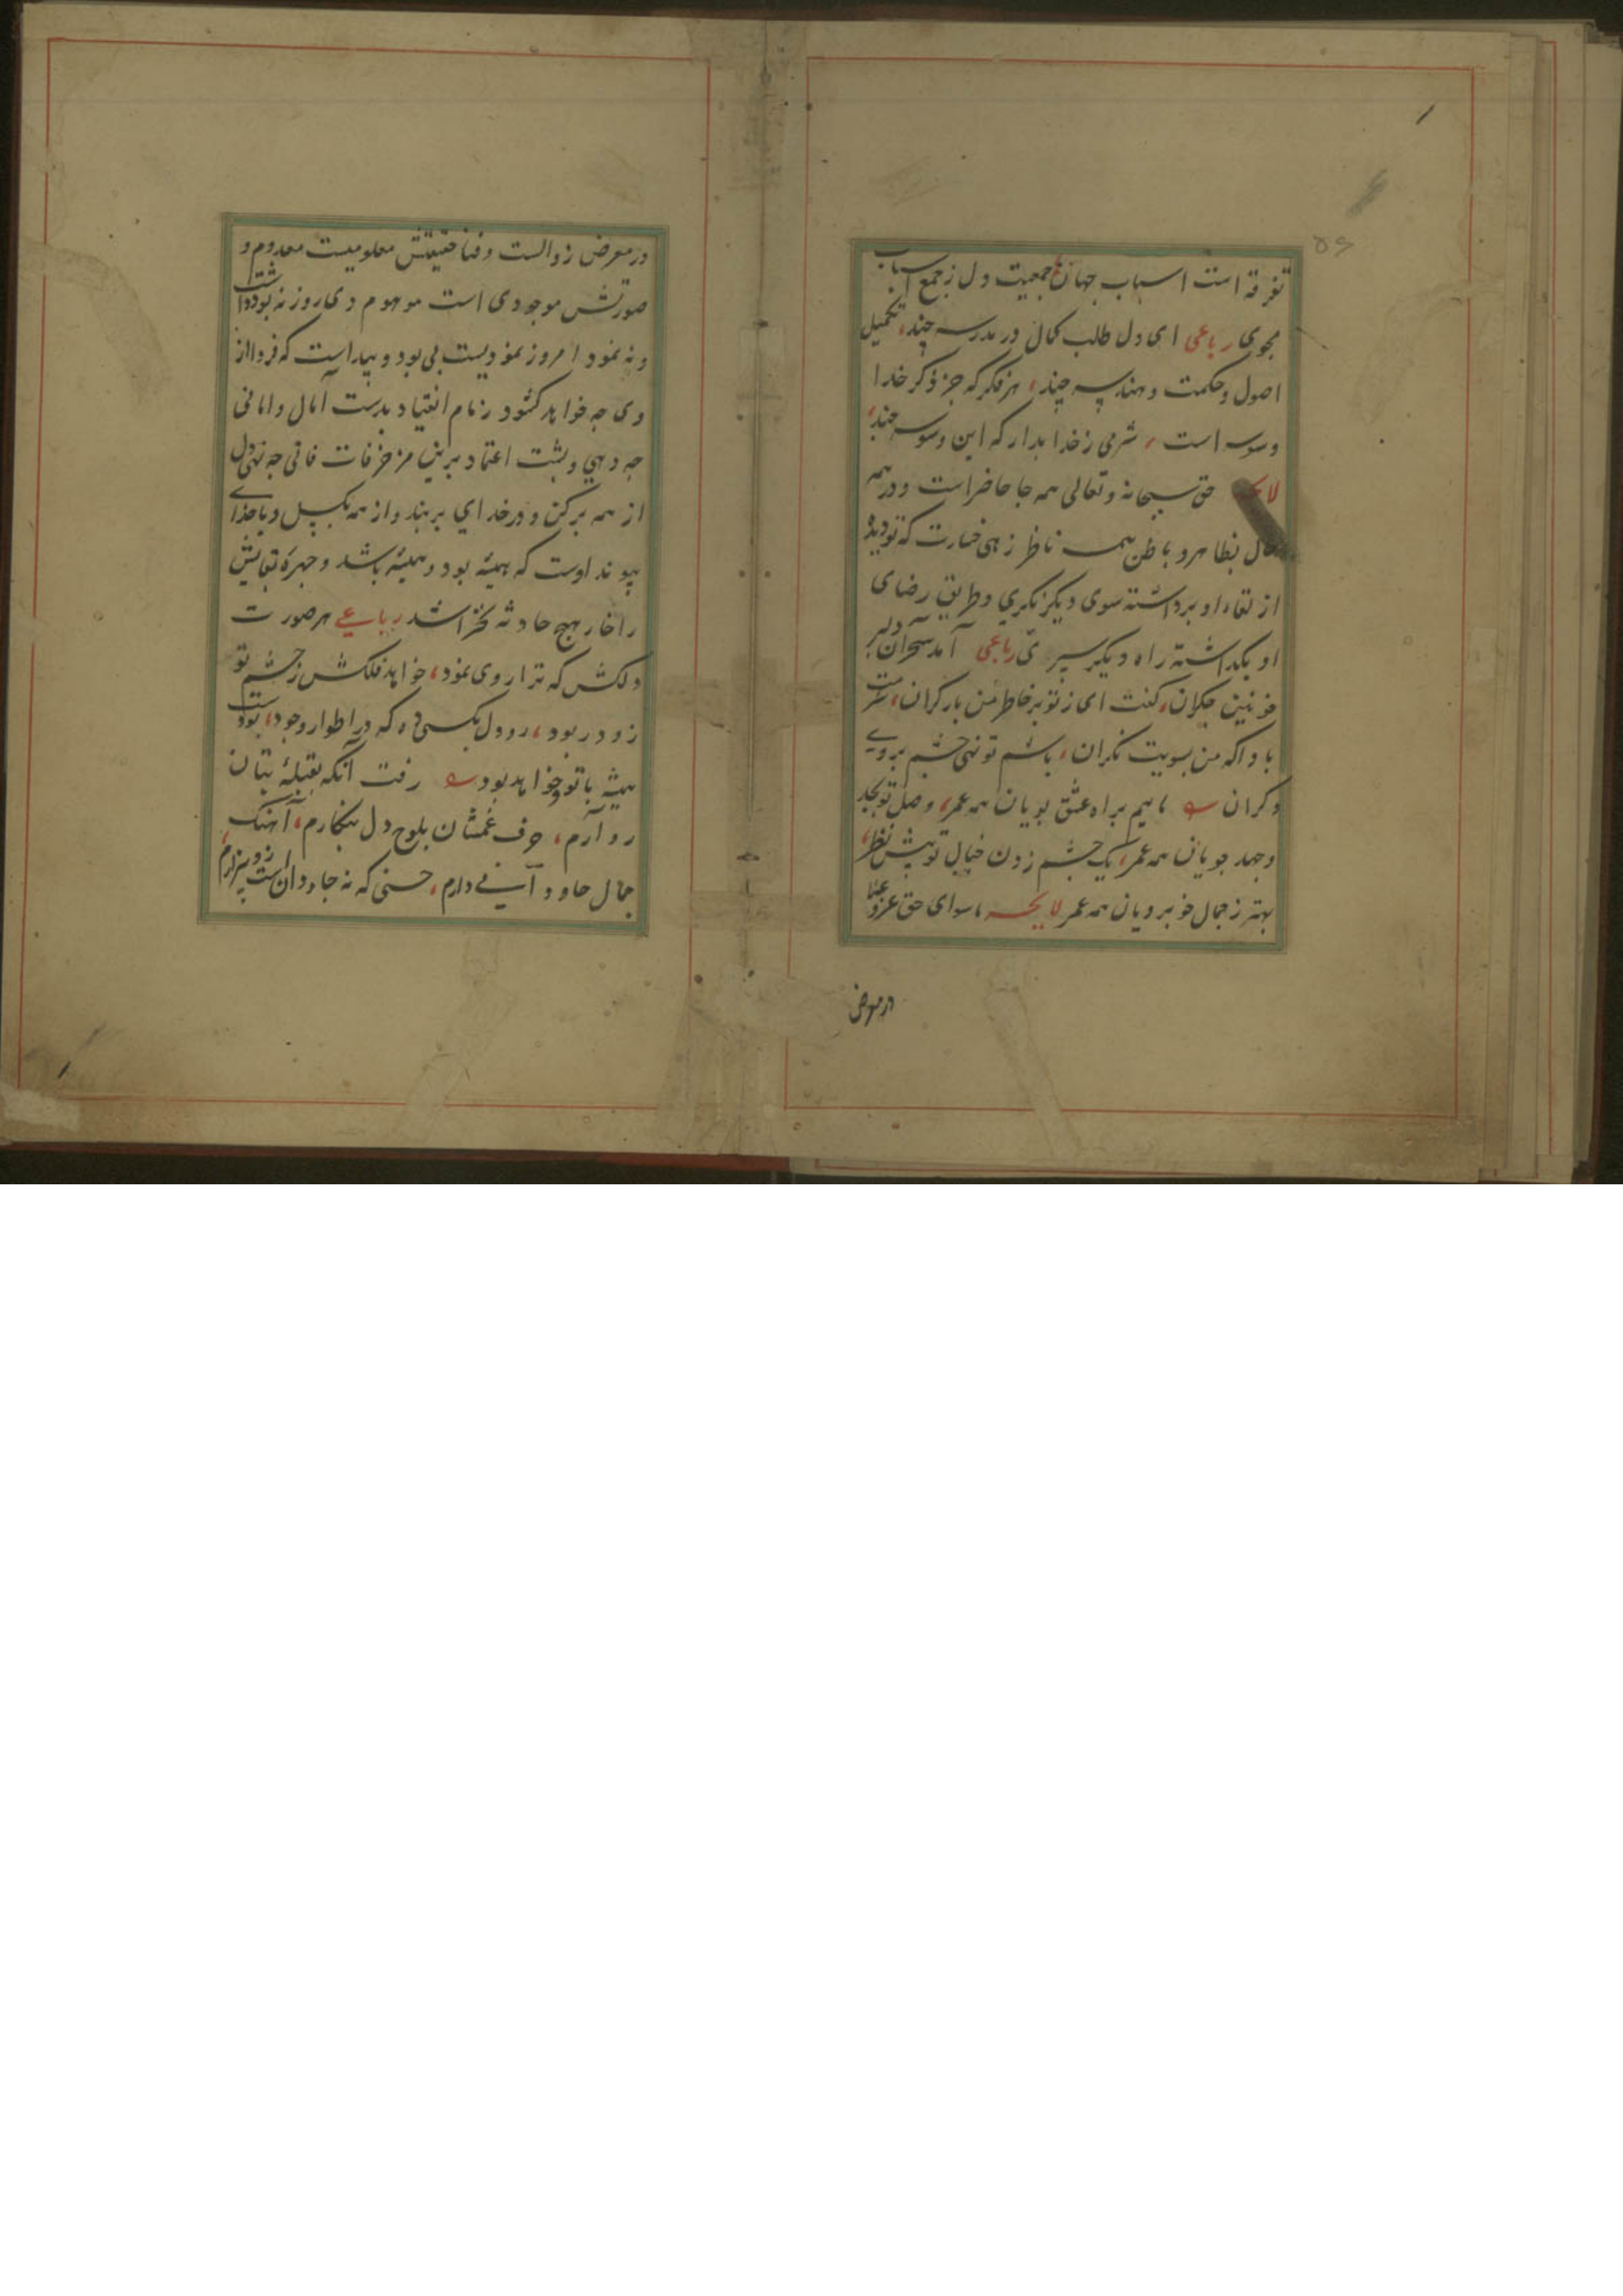 ۵۶
تفرقه است اسباب جهان جمعیت دل ز جمع اسباب
مجوی رباعی ای دل طلب کمال در مدرسه چند، تکمیل
اصول و حکمت و هندسه چند، هر فکر که جز ذکر خدا
وسوسه است، شرمی ز خدا بدار که این وسوسه چند،
حق سبحانه و تعالی همه جا حاضر است و در همه
حال بظاهر و باطن همه ناظر زهی خسارت که تو دیده
از لقاء او برداشته سوی دیگر نگری و طریق رضای
او بگذاشته راه دیگر سپری رباعی آمد سحر آن دلبر
خونین جگران، گفت ای ز تو بر خاطر من بار گران، شرمت
بادا که من بسویت نگران، باشم تو نهی چشم بروی
دگران مائیم براه عشق پویان همه عمر، وصل تو بجد
وجهد جویان همه عمر، یک چشم زدن خیال تو پیش نظر،
بهتر ز جمال خوبرویان همه عمر لایحه ماسوای حق عز و علا
در معرض
در معرض زوالست و فنا حقیقتش معلومیست معدوم و
صورتش موجودی است موهوم دی روز نه بود داشت
و نه نمود امروز نمودیست بی بود و پیداست که فردا از
وی چه خواهد کشود زمام انقیاد بدست آمال و امانی
چه دهی و پشت اعتماد برین مزخرفات فانی چه نهی دل
از همه برکن و در خدای بربند و از همه بگسل و با خدای
پیوند اوست که همیشه بود و همیشه باشد و چهره بقایش
را خار هیچ حادثه نخراشد رباعی هر صورت
دلکش که ترا روی نمود، خواهد فلکش ز چشم تو
زود ربود، رو دل بکسی ده که در اطوار وجود، بودست
همیشه با تو و خواهد بود رفت آنکه بقبله بتان
رو آرم، حرف غمشان بلوح دل بنگارم، آهنگ
جمال جاودانی دارم، حسنی که نه جاودان است ازو بیزارم،